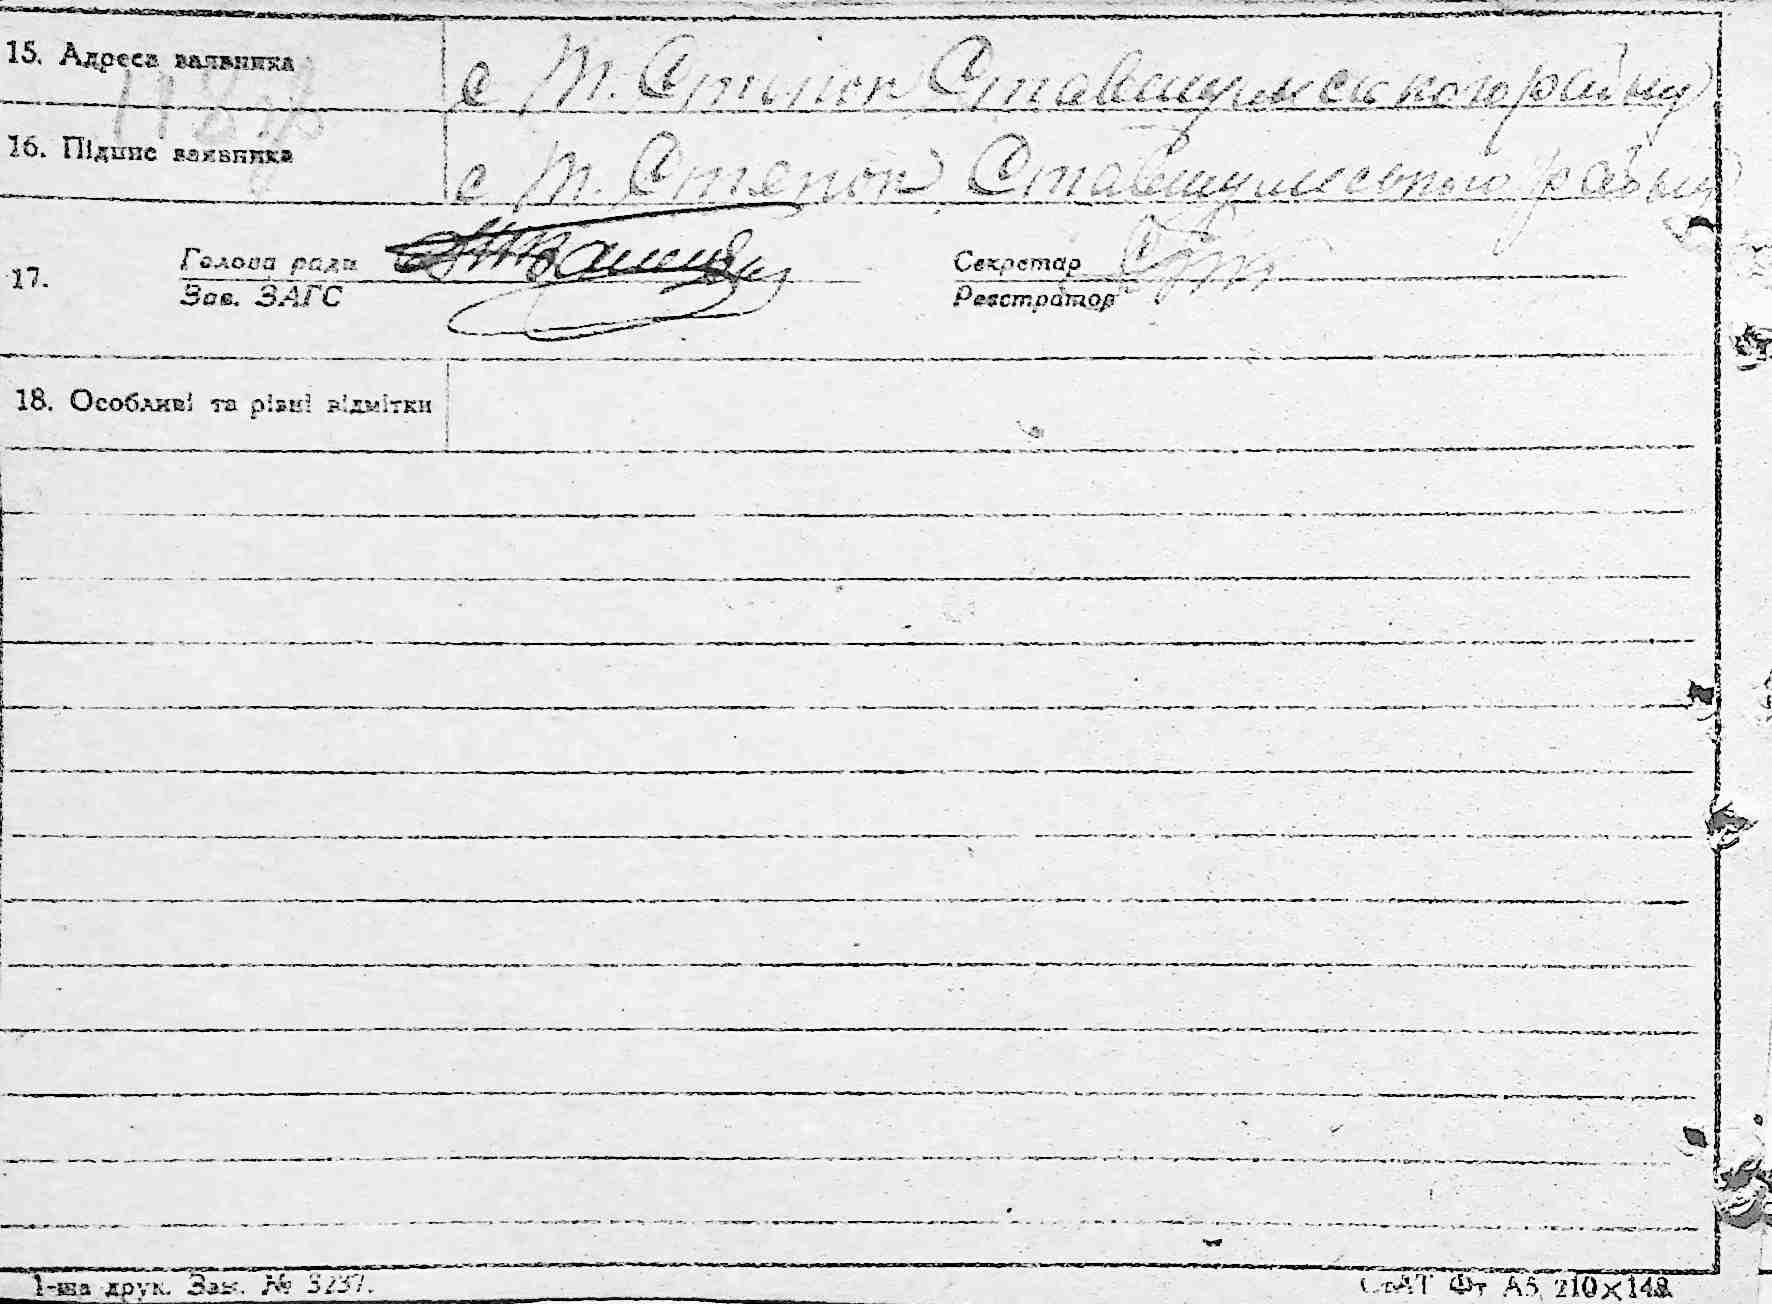 15. Адреса заявника с Т. Степок Ставищенського району
16. Підпис заявника с Т. Степок Ставищенського району
17. Голова ради Секретар
Зав. ЗАГС Реєстратор
18. Особливі та різні відмітки
1-ша друк. Зам. № 3237.
СтАТ Фт А5 210×148